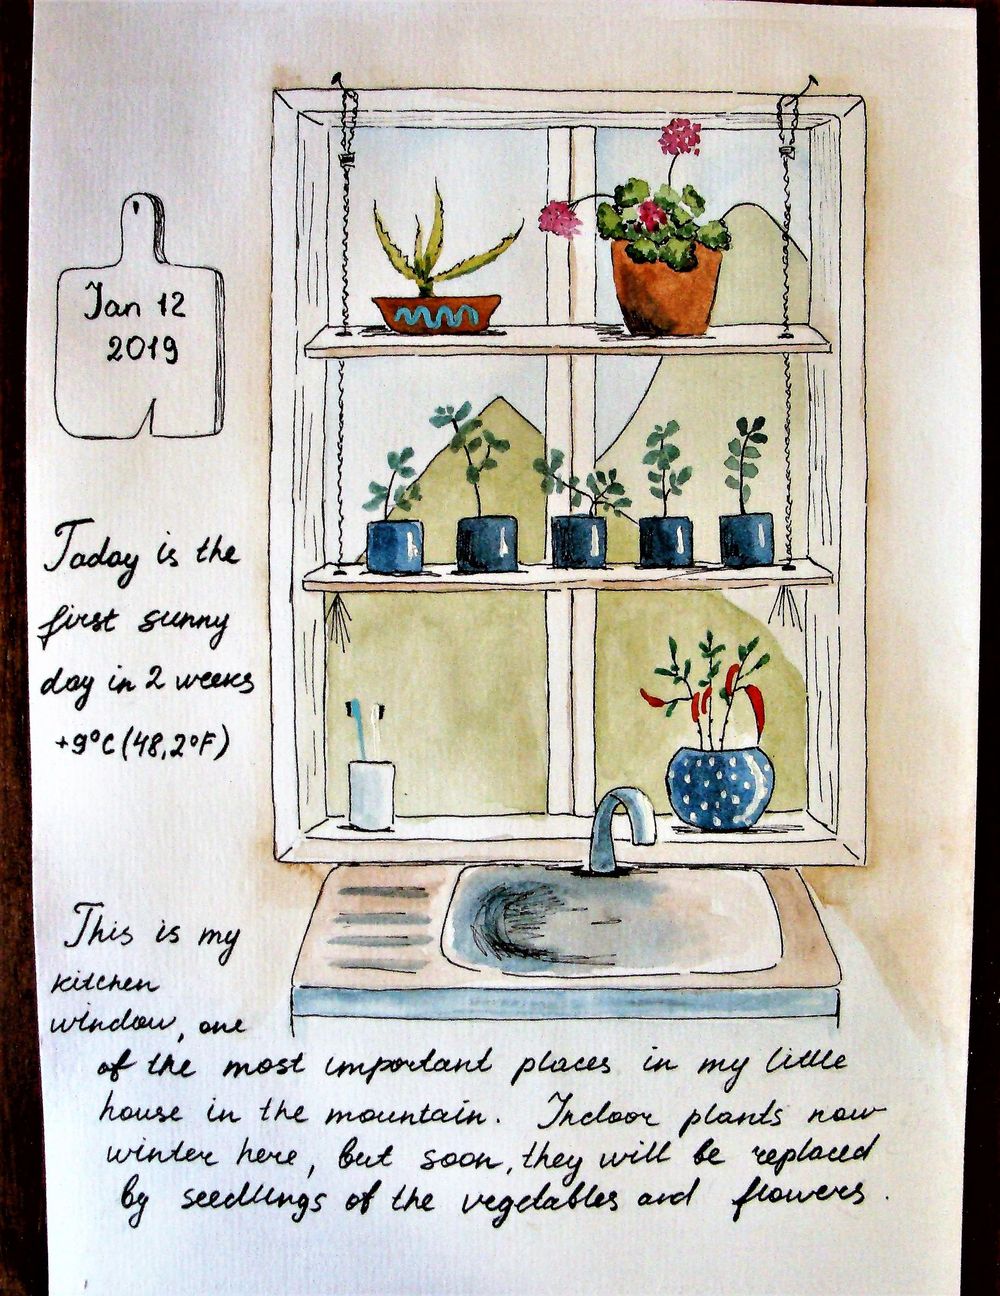 Jan 12
2019
Today is the
first sunny
day in 2 weeks
+9°C (48,2°F)
This is my
kitchen
window, one
of the most important places in my little
house in the mountain. Indoor plants now
winter here, but soon, they will be replaced
by seedlings of the vegetables and flowers.